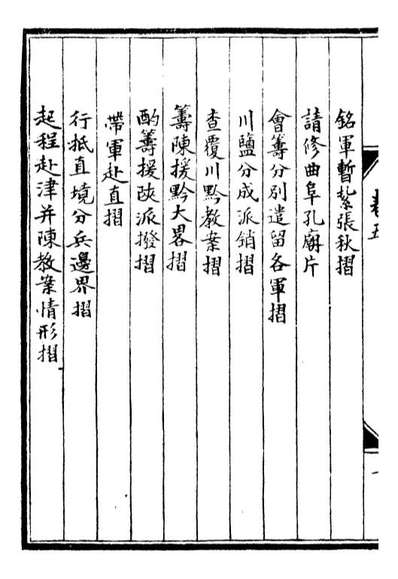 卷五
銘軍暫紮張秋摺
請修曲阜孔廟片
會籌分別遣留各軍摺
川鹽分成派銷摺
查覆川黔教案摺
籌陳援黔大畧摺
酌籌援陜派撥摺
帶軍赴直摺
行抵直境分兵邊界摺
起程赴津并陳教案情形摺